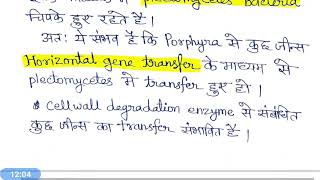 plectomycetes bacteria
चिपके हुए रहते है ।
अतः ये संभव है कि Porphyra से कुछ जीन्स
Horizontal gene transfer के माध्यम से
plectomycetes में transfer हुए हो ।
• Cellwall degradation enzyme से संबंधित
कुछ जीन्स का transfer संभावित है ।
12:04